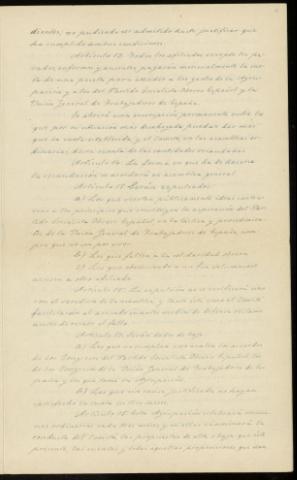 dientes, no pudiendo ser admitido hasta justificar que
ha cumplido ambas condiciones.
Artículo 13. Todos los afiliados excepto los pa-
rados, enfermos y ausentes, pagarán mensualmente la cuo-
ta de una peseta para atender a los gastos de la Agru-
pación y a los del Partido Socialista Obrero Español y la
Unión General de Trabajadores de España.
Se abrirá una suscripción permanente entre los
que por su situación más desahogada puedan dar más
que la cuota establecida, y el Comité, en las asambleas or-
dinarias, dará cuenta de las cantidades recaudadas.
Artículo 14. La forma en que ha de hacerse
la recaudación se acordará en asamblea general.
Artículo 15. Serán expulsados:
a) Los que viertan públicamente ideas contra-
rias a los principios que constituyen la aspiración del Par-
tido Socialista Obrero Español, en la táctica y procedimien-
tos de la Unión General de Trabajadores de España, siem-
pre que no sea por error.
b) Los que falten a la solidaridad obrera.
c) Los que
acusen a otro afiliado.
Artículo 16. La expulsión se
con el veredicto de la asamblea, y tanto ésta como el Comité
facilitarán al acusado cuantos medios de defensa reclame
antes de recaer el fallo.
Artículo 17. Serán dados de baja:
a) Los que no cumplan con
de los Congresos del Partido Socialista Obrero Español, los
de los Congresos de la Unión General de Trabajadores de Es-
paña y los que tome la Agrupación.
b) Los que sin causa justificada no hayan
satisfecho la cuota en tres meses.
Artículo 18. Esta Agrupación celebrará asam-
bleas ordinarias cada tres meses y en ellas examinará la
conducta del Comité, las propuestas de alta y baja que éste
presente, las cuentas y todas aquellas proposiciones que sean